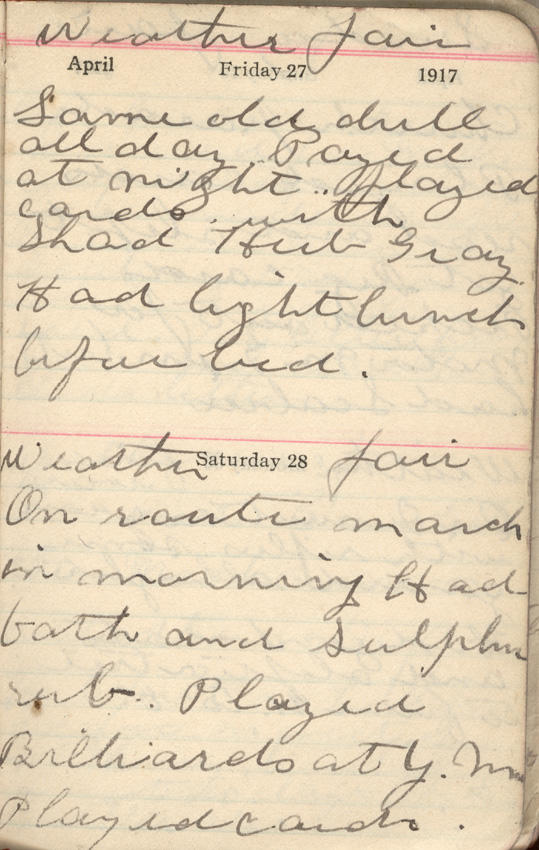 Weather Fair
April Friday 27 1917
Same old drill
all day. Payed
at night.. Played
cards. with
Shad Hub Gray.
Had light lunch
before bed.
Weather Saturday 28 Fair
On route march
in morning Had
bath and Sulphur
rub. Played
Billiards at Y. M
Played cards.